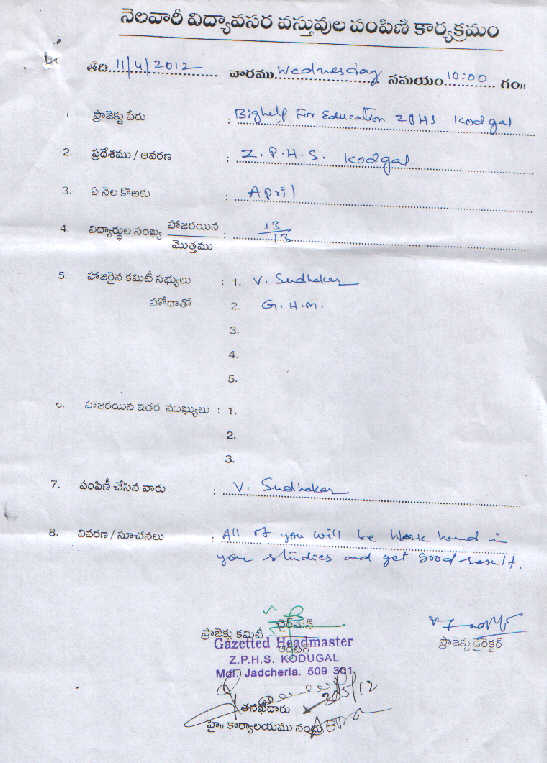 నెలవారీ విద్యావసర వస్తువుల పంపిణి కార్యక్రమం
తేది. 11/4/2012 వారము Wednesday సమయం 10:00 గం॥
1. ప్రాజెక్టు పేరు : Bighelp For Education ZPHS Kodgal
2. ప్రదేశము / ఆవరణ : Z.P.H.S. Kodgal
3. ఏ నెల కొఱకు : April
4. విద్యార్థుల సంఖ్య హాజరయిన : 13
మొత్తము 13
5. హాజరైన కమిటీ సభ్యులు : 1. V. Sudhakar
హోదాతో 2. G.H.M.
3.
4.
5.
6. హాజరయిన ఇతర ముఖ్యులు : 1.
2.
3.
7. పంపిణీ చేసిన వారు : V. Sudhakar
8. వివరణ / సూచనలు : All of you will be work hard in
your studies and get good result.
ప్రాజెక్టు కమిటీ చైర్మన్
ప్రాజెక్టు డైరెక్టర్
Gazetted Headmaster
Z.P.H.S. KODUGAL
Mdl. Jadcherla. 509 301
తనిఖీదారు
హై॥ కార్యాలయము నుంచి